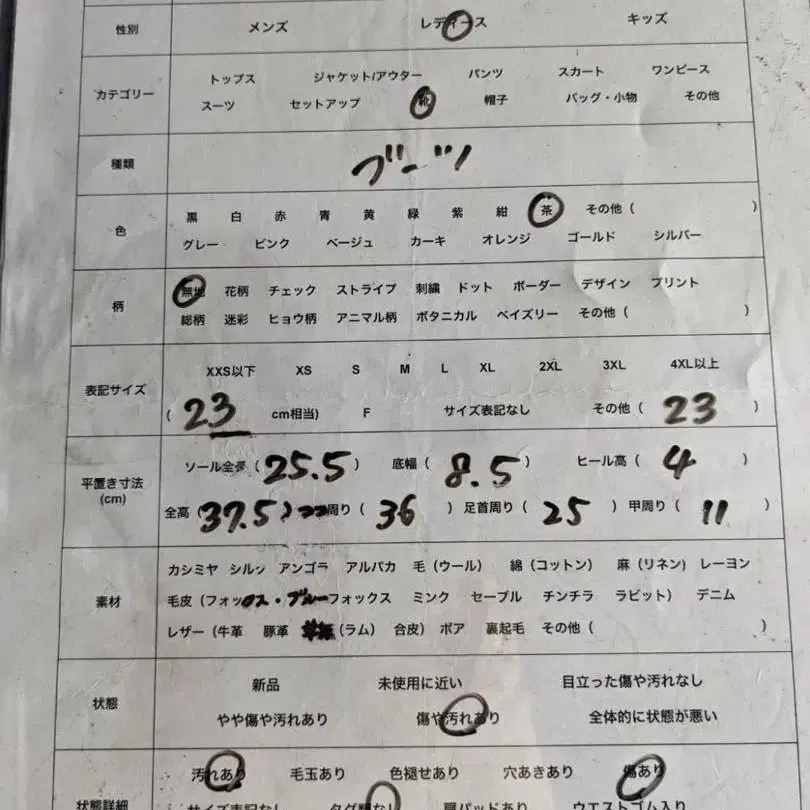 性別 メンズ レディース キッズ
カテゴリー
トップス ジャケット/アウター パンツ スカート ワンピース
スーツ セットアップ 靴 帽子 バッグ・小物 その他
種類 ブーツ
色
黒 白 赤 青 黄 緑 紫 紺 茶 その他 ( )
グレー ピンク ベージュ カーキ オレンジ ゴールド シルバー
柄
無地 花柄 チェック ストライプ 刺繍 ドット ボーダー デザイン プリント
総柄 迷彩 ヒョウ柄 アニマル柄 ボタニカル ペイズリー その他 ( )
表記サイズ
XXS以下 XS S M L XL 2XL 3XL 4XL以上
( 23 cm相当) F サイズ表記なし その他 ( 23 )
平置き寸法
(cm)
ソール全長 ( 25.5 ) 底幅 ( 8.5 ) ヒール高 ( 4 )
全高 ( 37.5 ) 周り ( 36 ) 足首周り ( 25 ) 甲周り ( 11 )
素材
カシミヤ シルク アンゴラ アルパカ 毛 (ウール) 綿 (コットン) 麻 (リネン) レーヨン
毛皮 (フォックス・ブルーフォックス ミンク セーブル チンチラ ラビット) デニム
レザー (牛革 豚革 (ラム) 合皮) ボア 裏起毛 その他 ( )
状態
新品 未使用に近い 目立った傷や汚れなし
やや傷や汚れあり 傷や汚れあり 全体的に状態が悪い
状態詳細
汚れあり 毛玉あり 色褪せあり 穴あきあり 傷あり
サイズ表記なし タグ類なし 肩パッドあり ウエストゴム入り